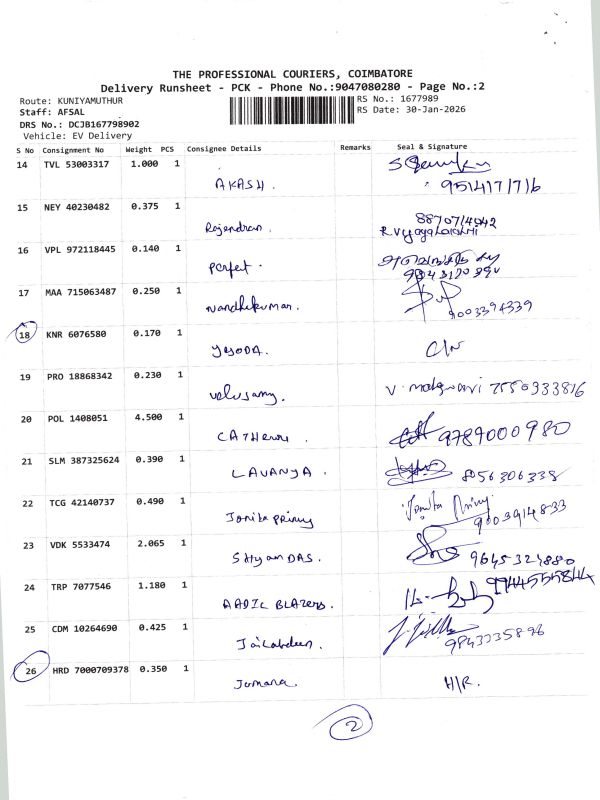 THE PROFESSIONAL COURIERS, COIMBATORE
Delivery Runsheet - PCK - Phone No.:9047080280 - Page No.:2
Route: KUNIYAMUTHUR
RS No.: 1677989
Staff: AFSAL
RS Date: 30-Jan-2026
DRS No.: DCJB167798902
Vehicle: EV Delivery
S No Consignment No Weight PCS Consignee Details Remarks Seal & Signature
14 TVL 53003317 1.000 1 AKASH.
9514171716
15 NEY 40230482 0.375 1 Rajendran.
R Vijayalakshmi
16 VPL 972118445 0.140 1 Perfet.
17 MAA 715063487 0.250 1 Nandhikumar.
9003394339
18 KNR 6076580 0.170 1 YESODA. C/N
19 PRO 18868342 0.230 1 Velusamy. V. 7550333816
20 POL 1408051 4.500 1 9789000980
21 SLM 387325624 0.390 1 LAVANYA. 8056306338
22 TCG 42140737 0.490 1 Jonita
9003914833
23 VDK 5533474 2.065 1 Shyam DAS.
9645321880
24 TRP 7077546 1.180 1 AADIL BLAZERS.
9944555844
25 CDM 10264690 0.425 1 Jailabdeen.
9843335896
26 HRD 7000709378 0.350 1 Jumana. H/R.
2